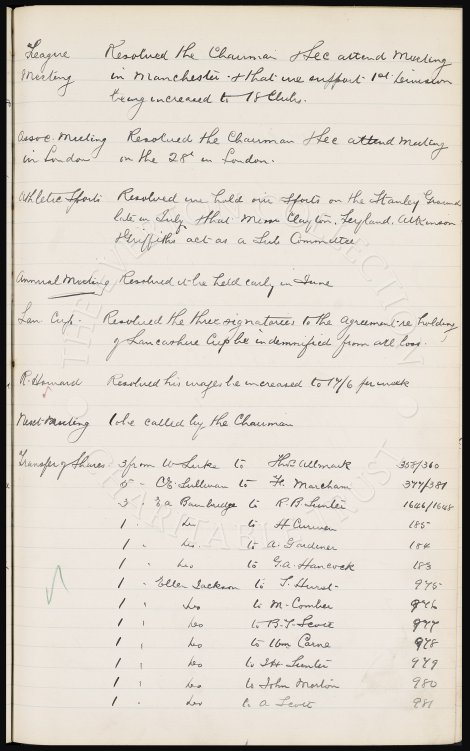 League Resolved the Chairman & Sec attend Meeting
Meeting in Manchester & that we support 1st Division
being increased to 18 Clubs.
Assoc. Meeting Resolved the Chairman & Sec attend Meeting
in London on the 28th in London.
Athletic Sports Resolved we hold our Sports on the Stanley Ground
late in July & that Messrs Clayton, Leyland, Atkinson
& Griffiths act as a Sub Committee
Annual Meeting Resolved it be held early in June
Lan. Cup. Resolved the three signatories to the Agreement re holding
of Lancashire Cup be indemnified from all loss.
R. Howard Resolved his wages be increased to 17/6 per week
Next Meeting to be called by the Chairman
Transfer of Shares 3 from W to Thos Allmark 358/360
5 " C E Sullivan to H. Marcham 377/381
3 " Bainbridge to R B Sunter 1646/1648
1 " do to H Curwen 185
1 " do to A. Gardiner 184
1 " do to G.A. Hancock 183
1 " Ellen Jackson to T. Hurst 975
1 " do to M. Comber 976
1 " do to B.T. Scott 977
1 " do to Wm Carne 978
1 " do to Sunter 979
1 " do to John Morton 980
1 " do to A Scott 981
THE EVERTON COLLECTION
CHARITABLE TRUST